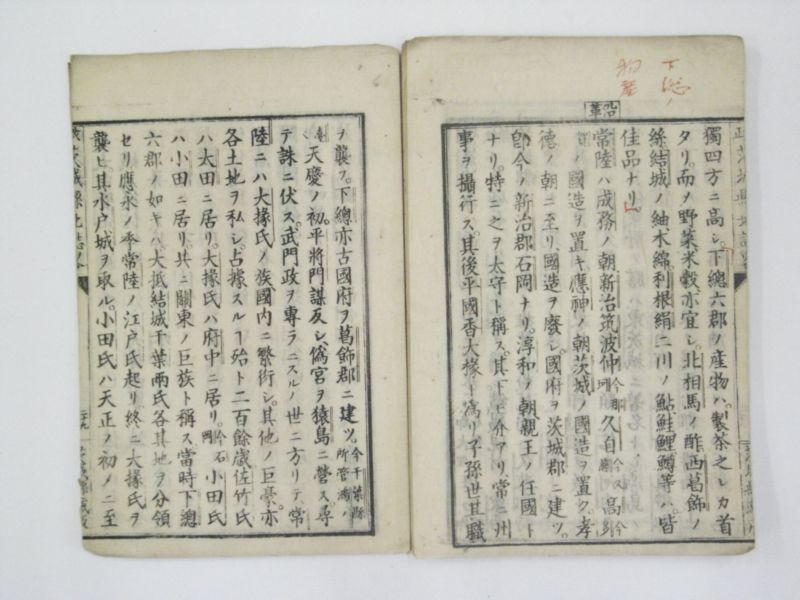 下総
物産
沿革
獨四方ニ高シ。下總六郡ノ産物ハ。製茶之レカ首
タリ。而メ野菜米穀亦宜シ。北相馬ノ酢西葛飾ノ
絲結城ノ紬木綿。利根絹二川ノ鮎鮭鯉鱒等ハ。皆
佳品ナリ。
常陸ハ成務ノ朝新治筑波仲 久自 高
ノ國造ヲ置キ應神ノ朝茨城ノ國造ヲ置ク。孝
德ノ朝ニ至リ。國造ヲ廢シ。國府ヲ茨城郡ニ建ツ。
卽今ノ新治郡石岡ナリ。淳和ノ朝親王ノ任國ト
ナリ。特ニ之ヲ太守ト稱ス。其下ニ介アリ常ニ州
事ヲ攝行ス。其後平國香大掾ト爲リ子孫世其職
ヲ襲フ。下總亦古國府ヲ葛飾郡ニ建ツ。今千葉縣所管鴻ノ
臺 天慶ノ初。平將門謀反シ。僞宮ヲ猿島ニ營ス。尋
テ誅ニ伏ス。武門政ヲ專ラニスルノ世ニ方リテ。常
陸ニハ大掾氏ノ族國内ニ繁衍シ。其他ノ巨豪亦
各土地ヲ私シ。占據スルヿ殆ト二百餘歳佐竹氏
ハ太田ニ居リ。大掾氏ハ府中ニ居リ。今石岡 小田氏
ハ小田ニ居リ。共ニ關東ノ巨族ト稱ス當時下總
六郡ノ如キハ大抵結城千葉兩氏各其地ヲ分領
セリ應永ノ季常陸ノ江戸氏起リ終ニ大掾氏ヲ
襲ヒ其水戸城ヲ取ル。小田氏ハ天正ノ初ノニ至
茨城縣地誌略